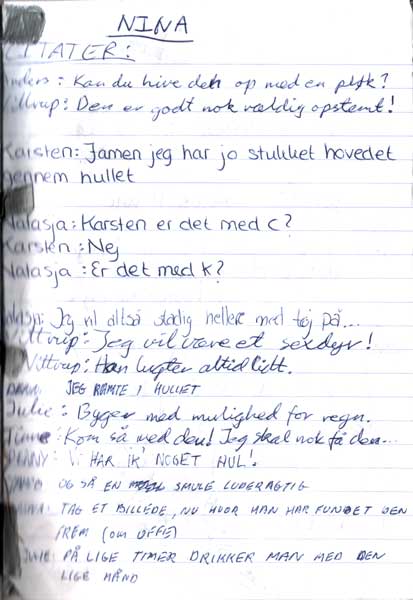 NINA
CITATER:
Anders: Kan du hive den op med en pløk?
Vittrup: Den er godt nok vældig opstemt!
Karsten: Jamen jeg har jo stukket hovedet
gennem hullet
Natasja: Karsten er det med C?
Karsten: Nej
Natasja: Er det med K?
Jeg vil altså stadig hellere med tøj på...
Vittrup: Jeg vil være et sexdyr!
Vittrup: Han lugter altid lidt.
JEG RAMTE I HULLET
Julie: Byger med mulighed for regn.
Kom så med den! Jeg skal nok få den...
VI HAR IK' NOGET HUL!
OG SÅ EN SMULE LUDERAGTIG
TAG ET BILLEDE, NU HVOR HAN HAR FUNDET DEN
FREM (OM UFFE)
JULIE: PÅ LIGE TIMER DRIKKER MAN MED DEN
LIGE HÅND